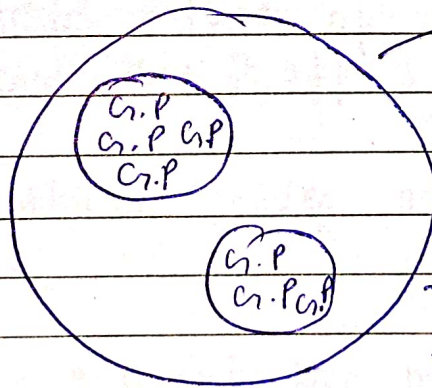 G.P
G.P G.P
G.P
G.P
G.P G.P